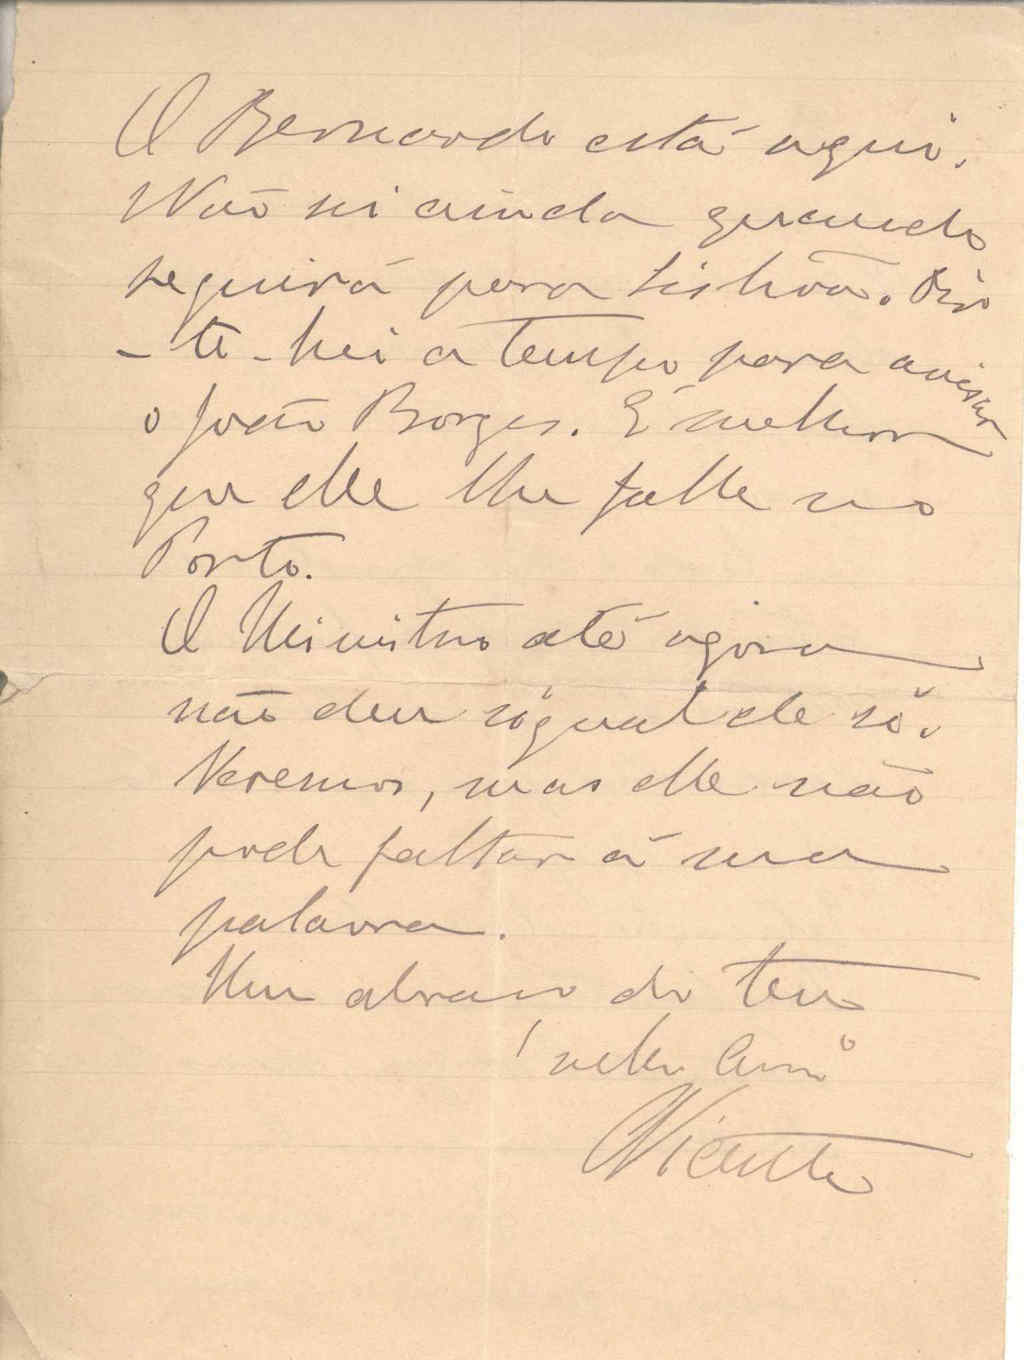 O Bernardo está aqui.
Não sei ainda quando
seguirá para Lisboa. Dir
-te-hei a tempo para avisar
o João Borges. É melhor
que elle lhe falle no
Porto.
O Ministro até agora
não deu signal de si.
Veremos, mas elle não
pode faltar á sua
palavra.
Um abraço do teu
velho Am.º
Vicente